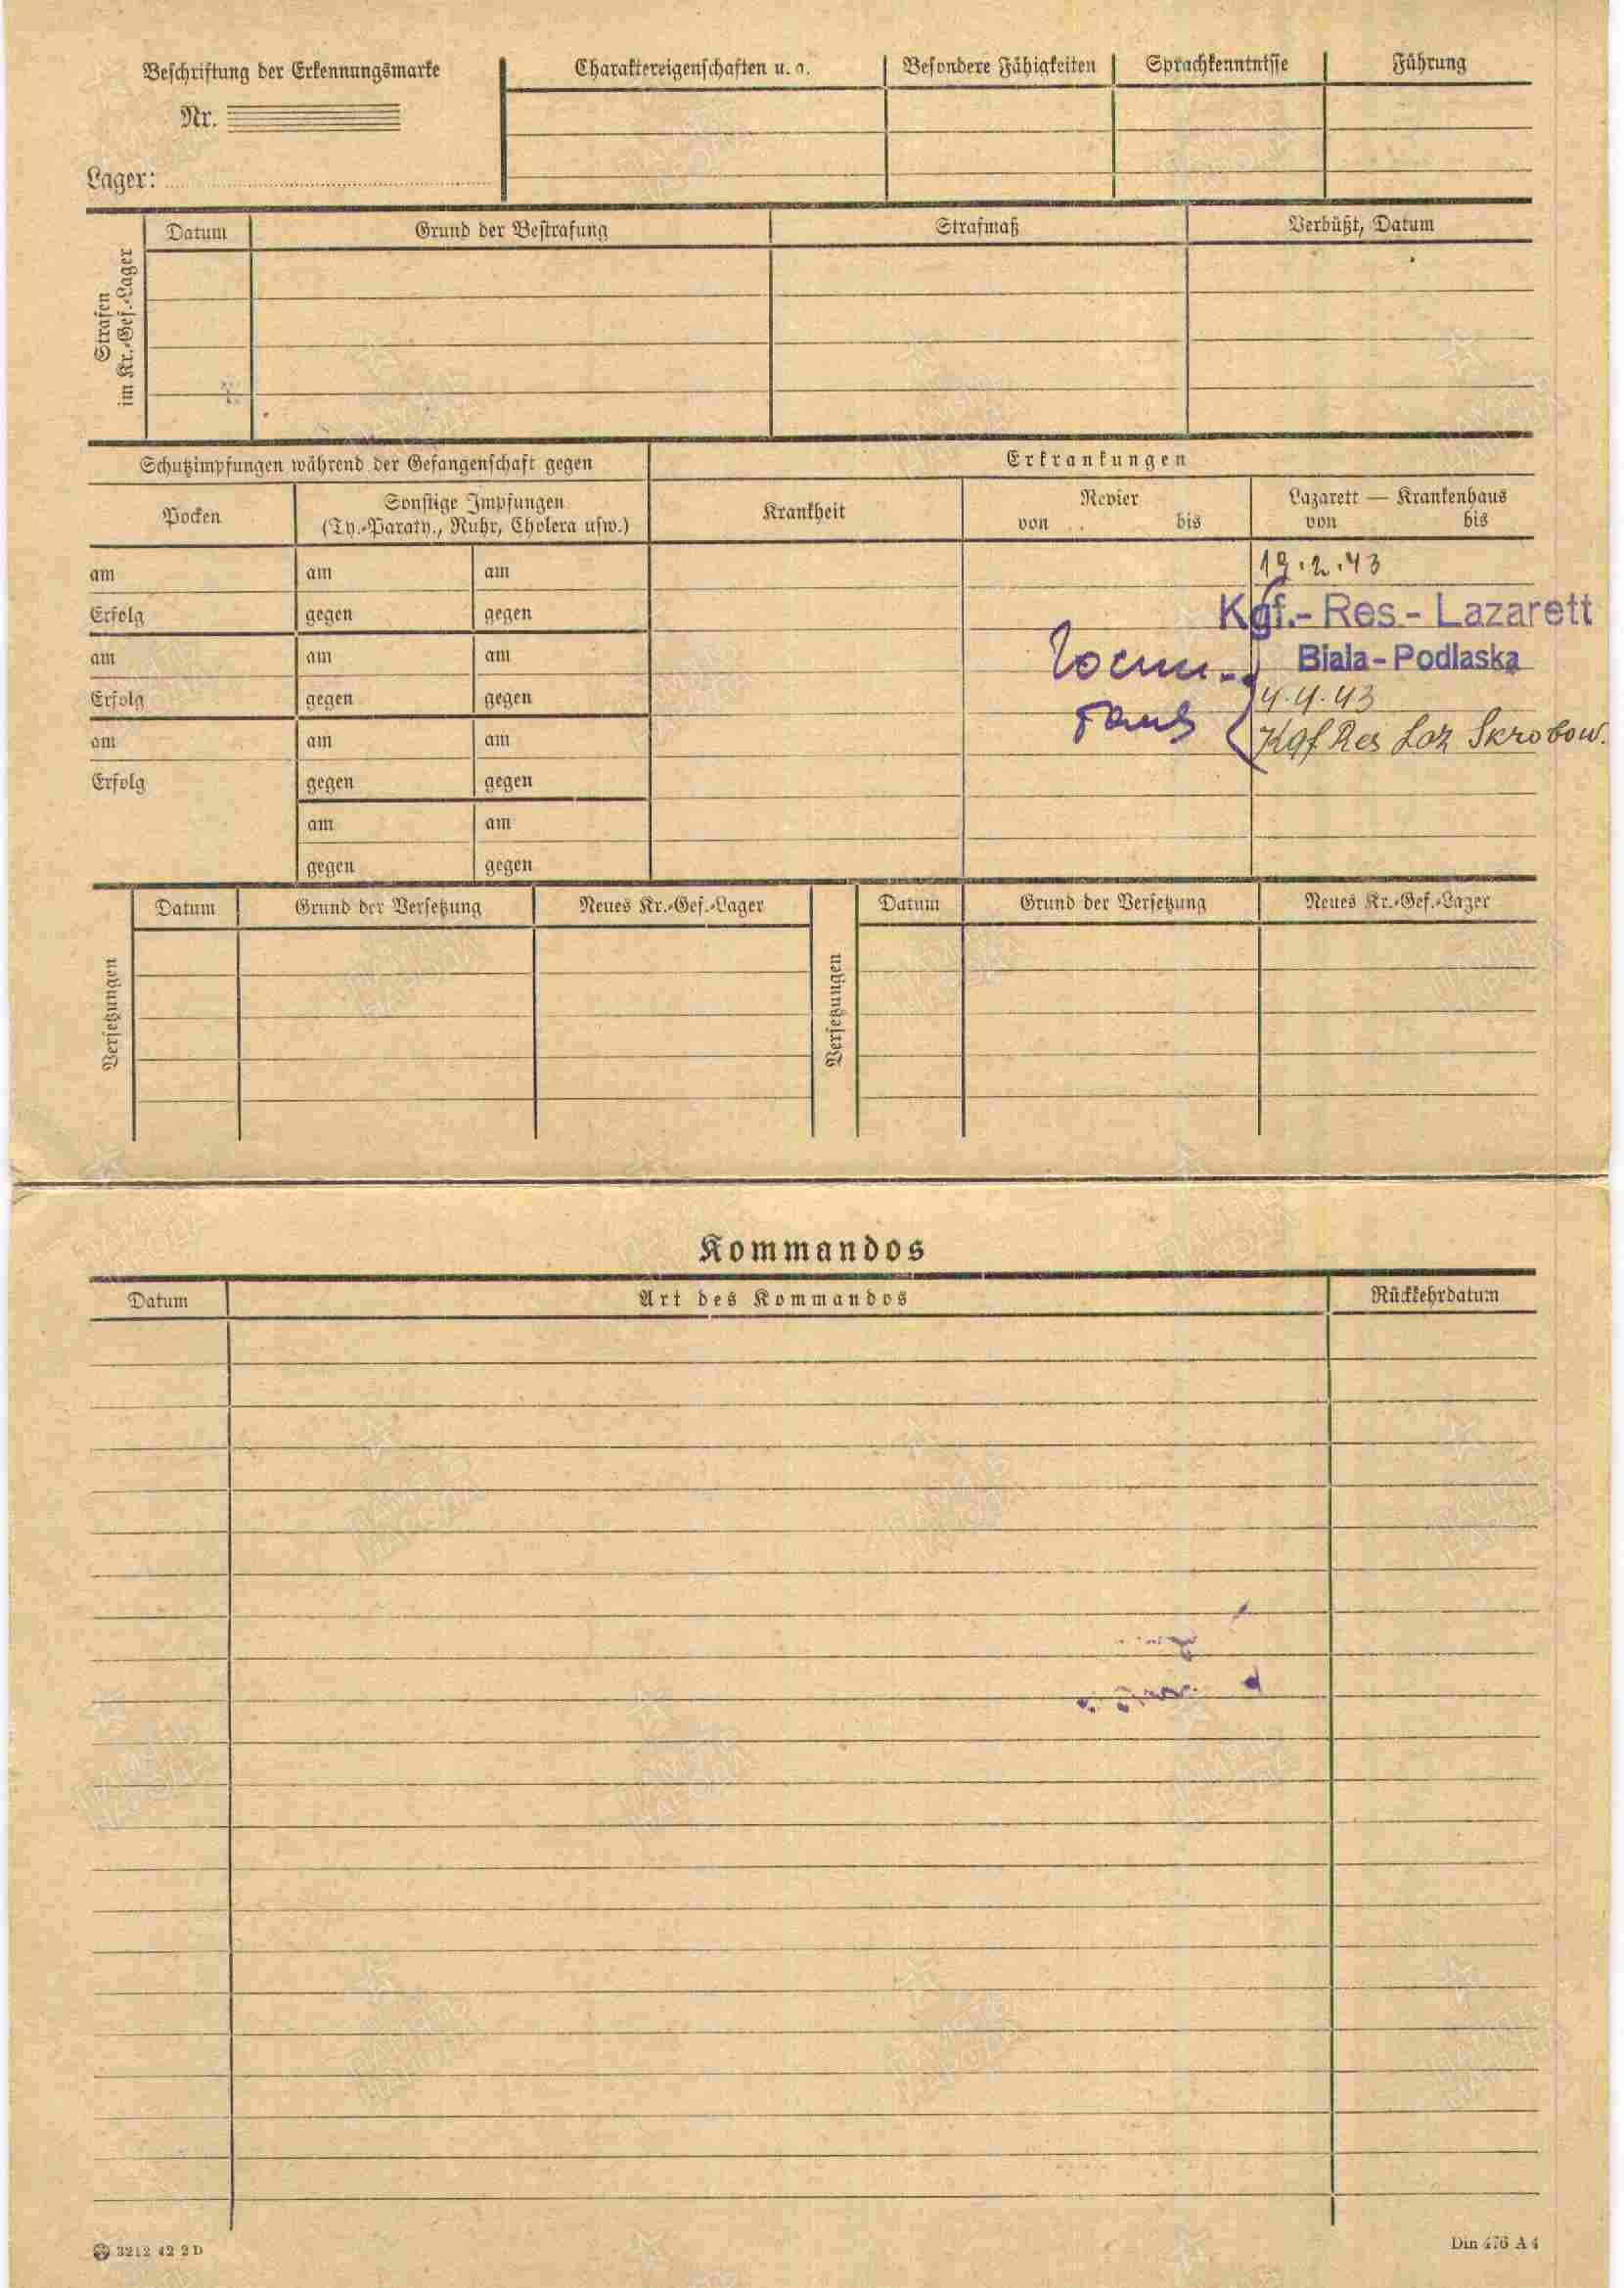 Beschriftung der Erkennungsmarke
Nr.
Lager:
Charaktereigenschaften u. a.
Besondere Fähigkeiten
Sprachkenntnisse
Führung
Strafen
im Kr.-Gef.-Lager
Datum
Grund der Bestrafung
Strafmaß
Verbüßt, Datum
Schutzimpfungen während der Gefangenschaft gegen
Erkrankungen
Pocken
Sonstige Impfungen
(Ty.-Paraty., Ruhr, Cholera usw.)
Krankheit
Revier
von bis
Lazarett — Krankenhaus
von bis
am am am 19.2.43
Erfolg gegen gegen Kgf.- Res - Lazarett
am am am госпи- Biala - Podlaska
Erfolg gegen gegen 4.4.43
am am am таль Kgf Res Laz Skrobow.
Erfolg gegen gegen
am am
gegen gegen
Versetzungen
Datum
Grund der Versetzung
Neues Kr.-Gef.-Lager
Versetzungen
Datum
Grund der Versetzung
Neues Kr.-Gef.-Lager
Kommandos
Datum
Art des Kommandos
Rückkehrdatum
3212 42 2 D
Din 476 A 4
ПАМЯТЬ
НАРОДА